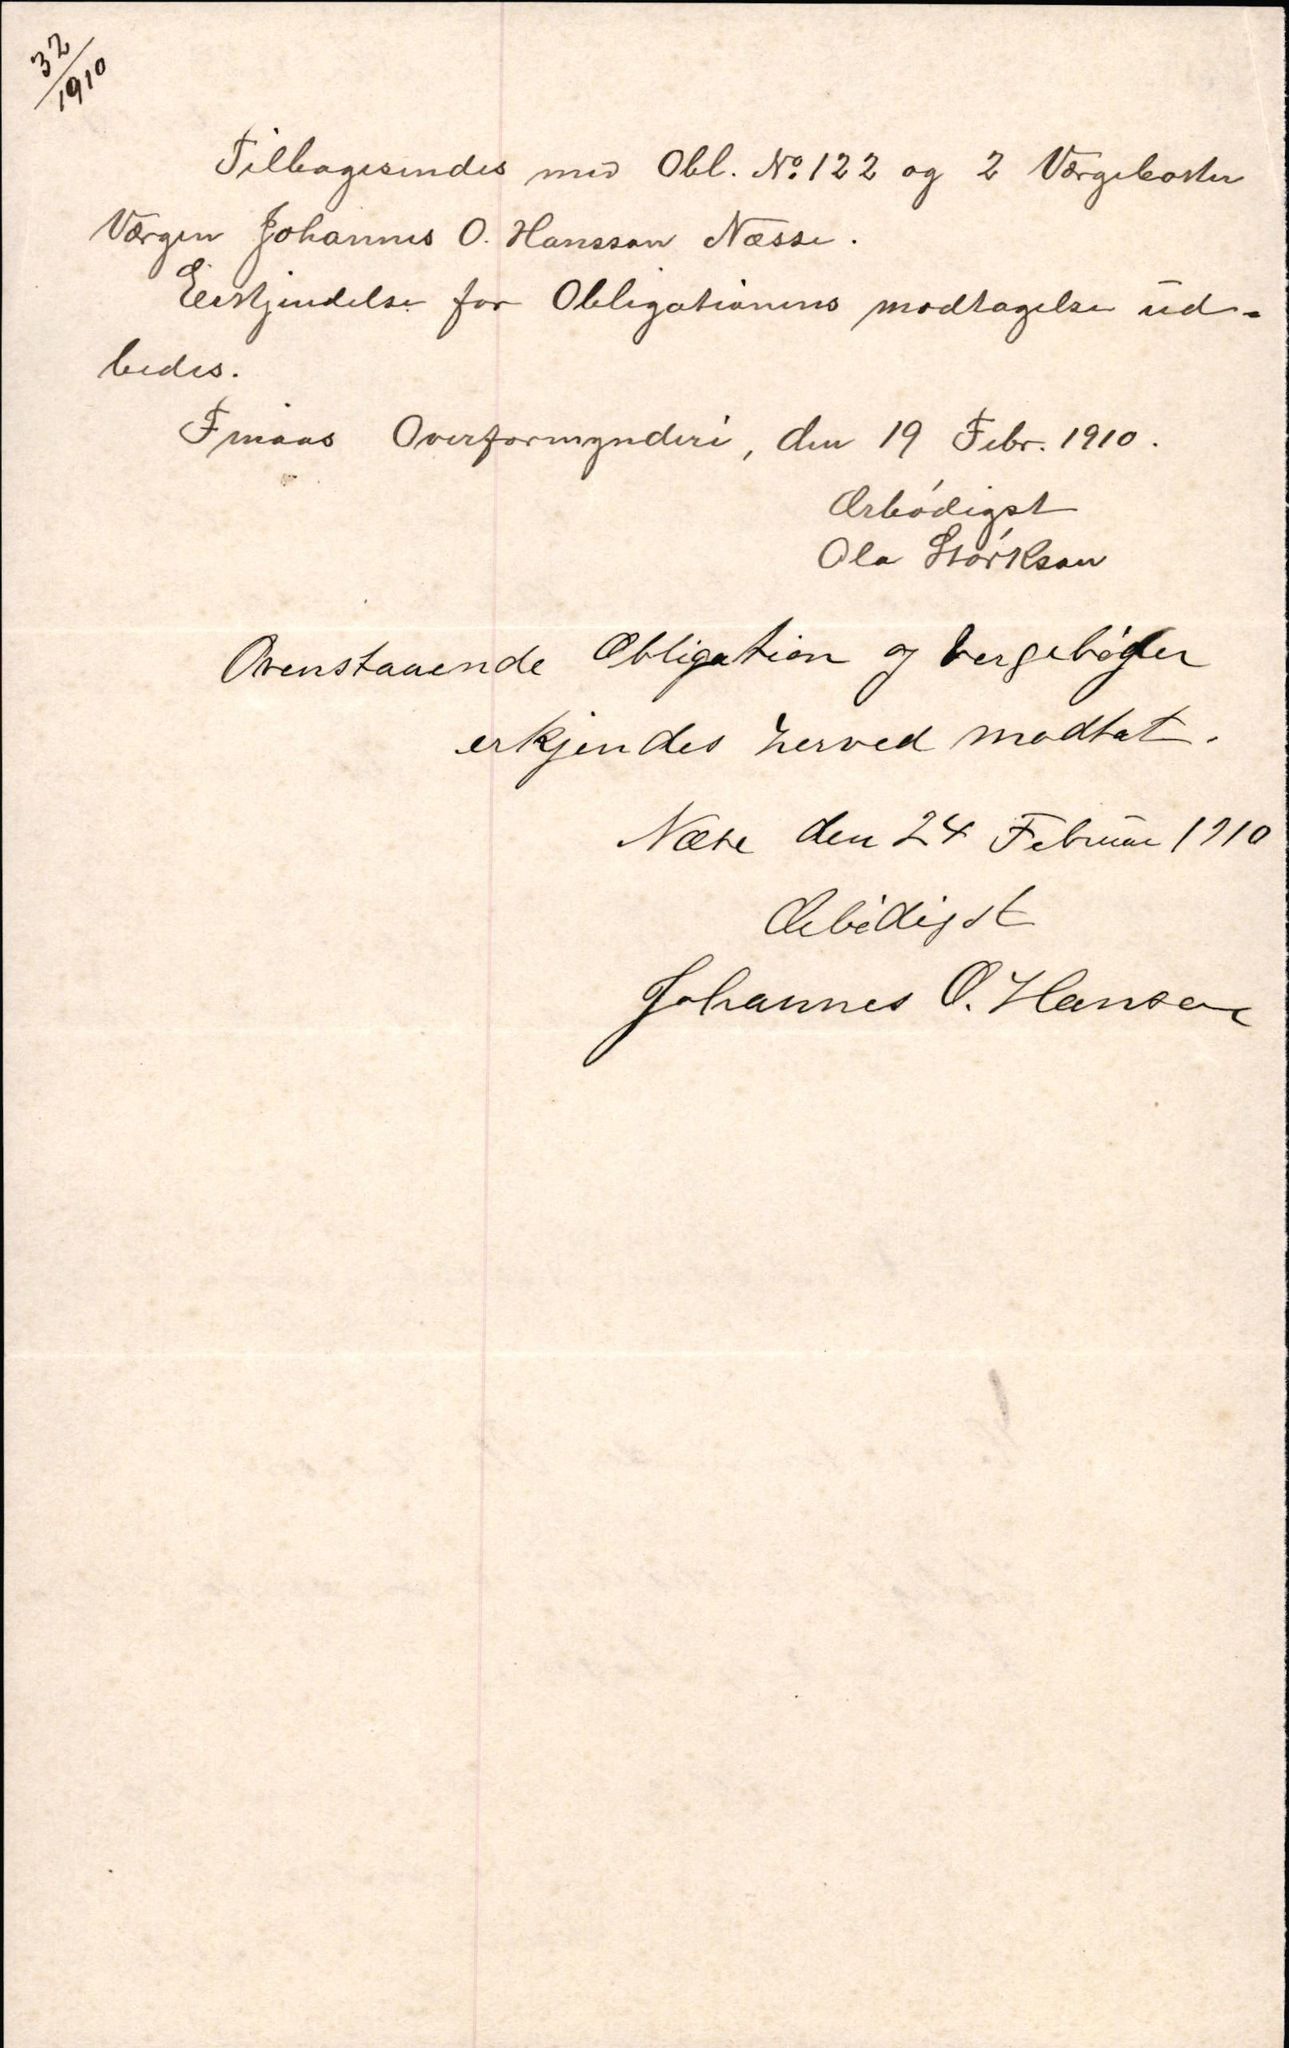 32
1910
Tilbagesendes med Obl. No. 122 og 2
Værgen Johannes O. Hansson Næsse.
Erkjendelse for Obligationens modtagelse ud-
bedes.
Finaas Overformynderi, den 19 Febr. 1910.
Ærbødigst
Ola Størkson
Ovenstaaende Obligation og vergebøger
erkjendes herved modtat.
Næse den 24 Februar 1910
Ærbødigst
Johannes O. Hansen